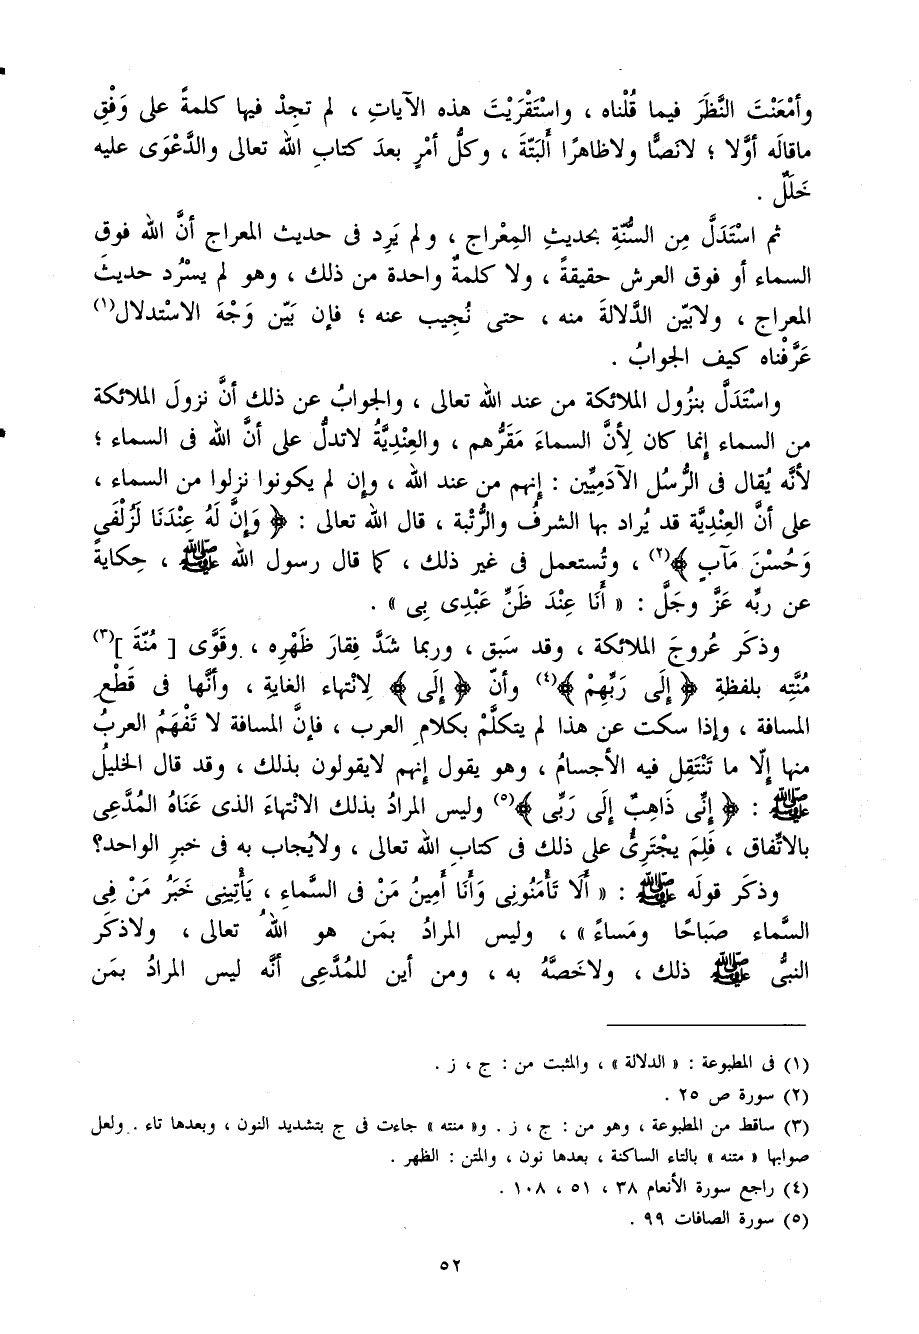 وأمْعَنْتَ النَّظَرَ فيما قُلْناه ، واسْتَقْرَيْتَ هذه الآياتِ ، لم تجِدْ فيها كلمةً على وَفْقِ
ماقالَه أوَّلا ؛ لانَصًّا ولاظاهرًا أَلبَتّةَ ، وكلُّ أمْرٍ بعدَ كتابِ الله تعالى والدَّعْوَى عليه
خَلَلٌ .
ثم اسْتَدَلَّ مِن السُّنَّةِ بحديثِ المِعْراج ، ولم يَرِد فى حديث المعراج أنَّ الله فوق
السماء أو فوق العرش حقيقةً ، ولا كلمةٌ واحدة من ذلك ، وهو لم يسْرُد حديثَ
المعراج ، ولابيّن الدَّلالةَ منه ، حتى نُجِيب عنه ؛ فإن بَيّن وَجْهَ الاسْتدلال(١)
عَرَّفْناه كيف الجوابُ .
واسْتَدَلَّ بنزُول الملائكة من عند الله تعالى ، والجوابُ عن ذلك أنَّ نزولَ الملائكة
من السماء إنما كان لِأنَّ السماءَ مَقَرُّهم ، والعِنْدِيَّةُ لاتدلُّ على أنَّ الله فى السماء ؛
لأنَّه يُقال فى الرُّسُل الآدَمِيِّين : إنهم من عند الله ، وإن لم يكونوا نزلوا من السماء ،
على أنَّ العِنْدِيَّة قد يُراد بها الشرفُ والرُّتْبة ، قال الله تعالى : ﴿ وَإِنَّ لَهُ عِنْدَنَا لَزُلْفَى
وَحُسْنَ مَآبٍ ﴾(٢) ، وتُستعمل فى غير ذلك ، كما قال رسول الله ﷺ ، حِكايةً
عن ربِّه عَزَّ وجَلَّ : « أَنَا عِنْدَ ظَنِّ عَبْدِى بِى » .
وذكَر عُروجَ الملائكة ، وقد سَبق ، وربما شَدَّ فِقارَ ظَهْرِه ، وقَوَّى [ مُنّةَ ](٣)
مُنَّتِه بلفظةِ ﴿ إِلَى رَبِّهِمْ ﴾(٤) وأنّ ﴿ إِلَى ﴾ لِانْتهاء الغاية ، وأنَّها فى قَطْعِ
المسافة ، وإذا سكت عن هذا لم يتكلَّمْ بكلام العرب ، فإنَّ المسافة لا تَفْهَمُ العربُ
منها إلّا ما تَنْتَقِل فيه الأجسامُ ، وهو يقول إنهم لايقولون بذلك ، وقد قال الخليلُ
ﷺ : ﴿ إِنِّى ذَاهِبٌ إِلَى رَبِّى ﴾(٥) وليس المرادُ بذلك الانْتهاءَ الذى عَنَاهُ المُدَّعِى
بالاتّفاق ، فَلِمَ يجْتَرِئُ على ذلك فى كتابِ الله تعالى ، ولايُجاب به فى خبرِ الواحد؟
وذكَر قولَه ﷺ : « أَلَا تَأْمَنُونِى وَأَنَا أَمِينُ مَنْ فى السَّماءِ ، يَأْتِينِى خَبَرُ مَنْ فِى
السَّماء صَباحًا ومَساءً » ، وليس المرادُ بمَن هو اللهُ تعالى ، ولاذكَر
النبىُّ ﷺ ذلك ، ولاخَصَّهُ به ، ومن أين للمُدَّعِى أنَّه ليس المرادُ بمَن
(١) فى المطبوعة : « الدلالة » ، والمثبت من : ج ، ز .
(٢) سورة ص ٢٥ .
(٣) ساقط من المطبوعة ، وهو من : ج ، ز . و« منته » جاءت فى ج بتشديد النون ، وبعدها تاء . ولعل
صوابها « متنه » بالتاء الساكنة ، بعدها نون ، والمتن : الظهر .
(٤) راجع سورة الأنعام ٣٨ ، ٥١ ، ١٠٨ .
(٥) سورة الصافات ٩٩ .
٥٢